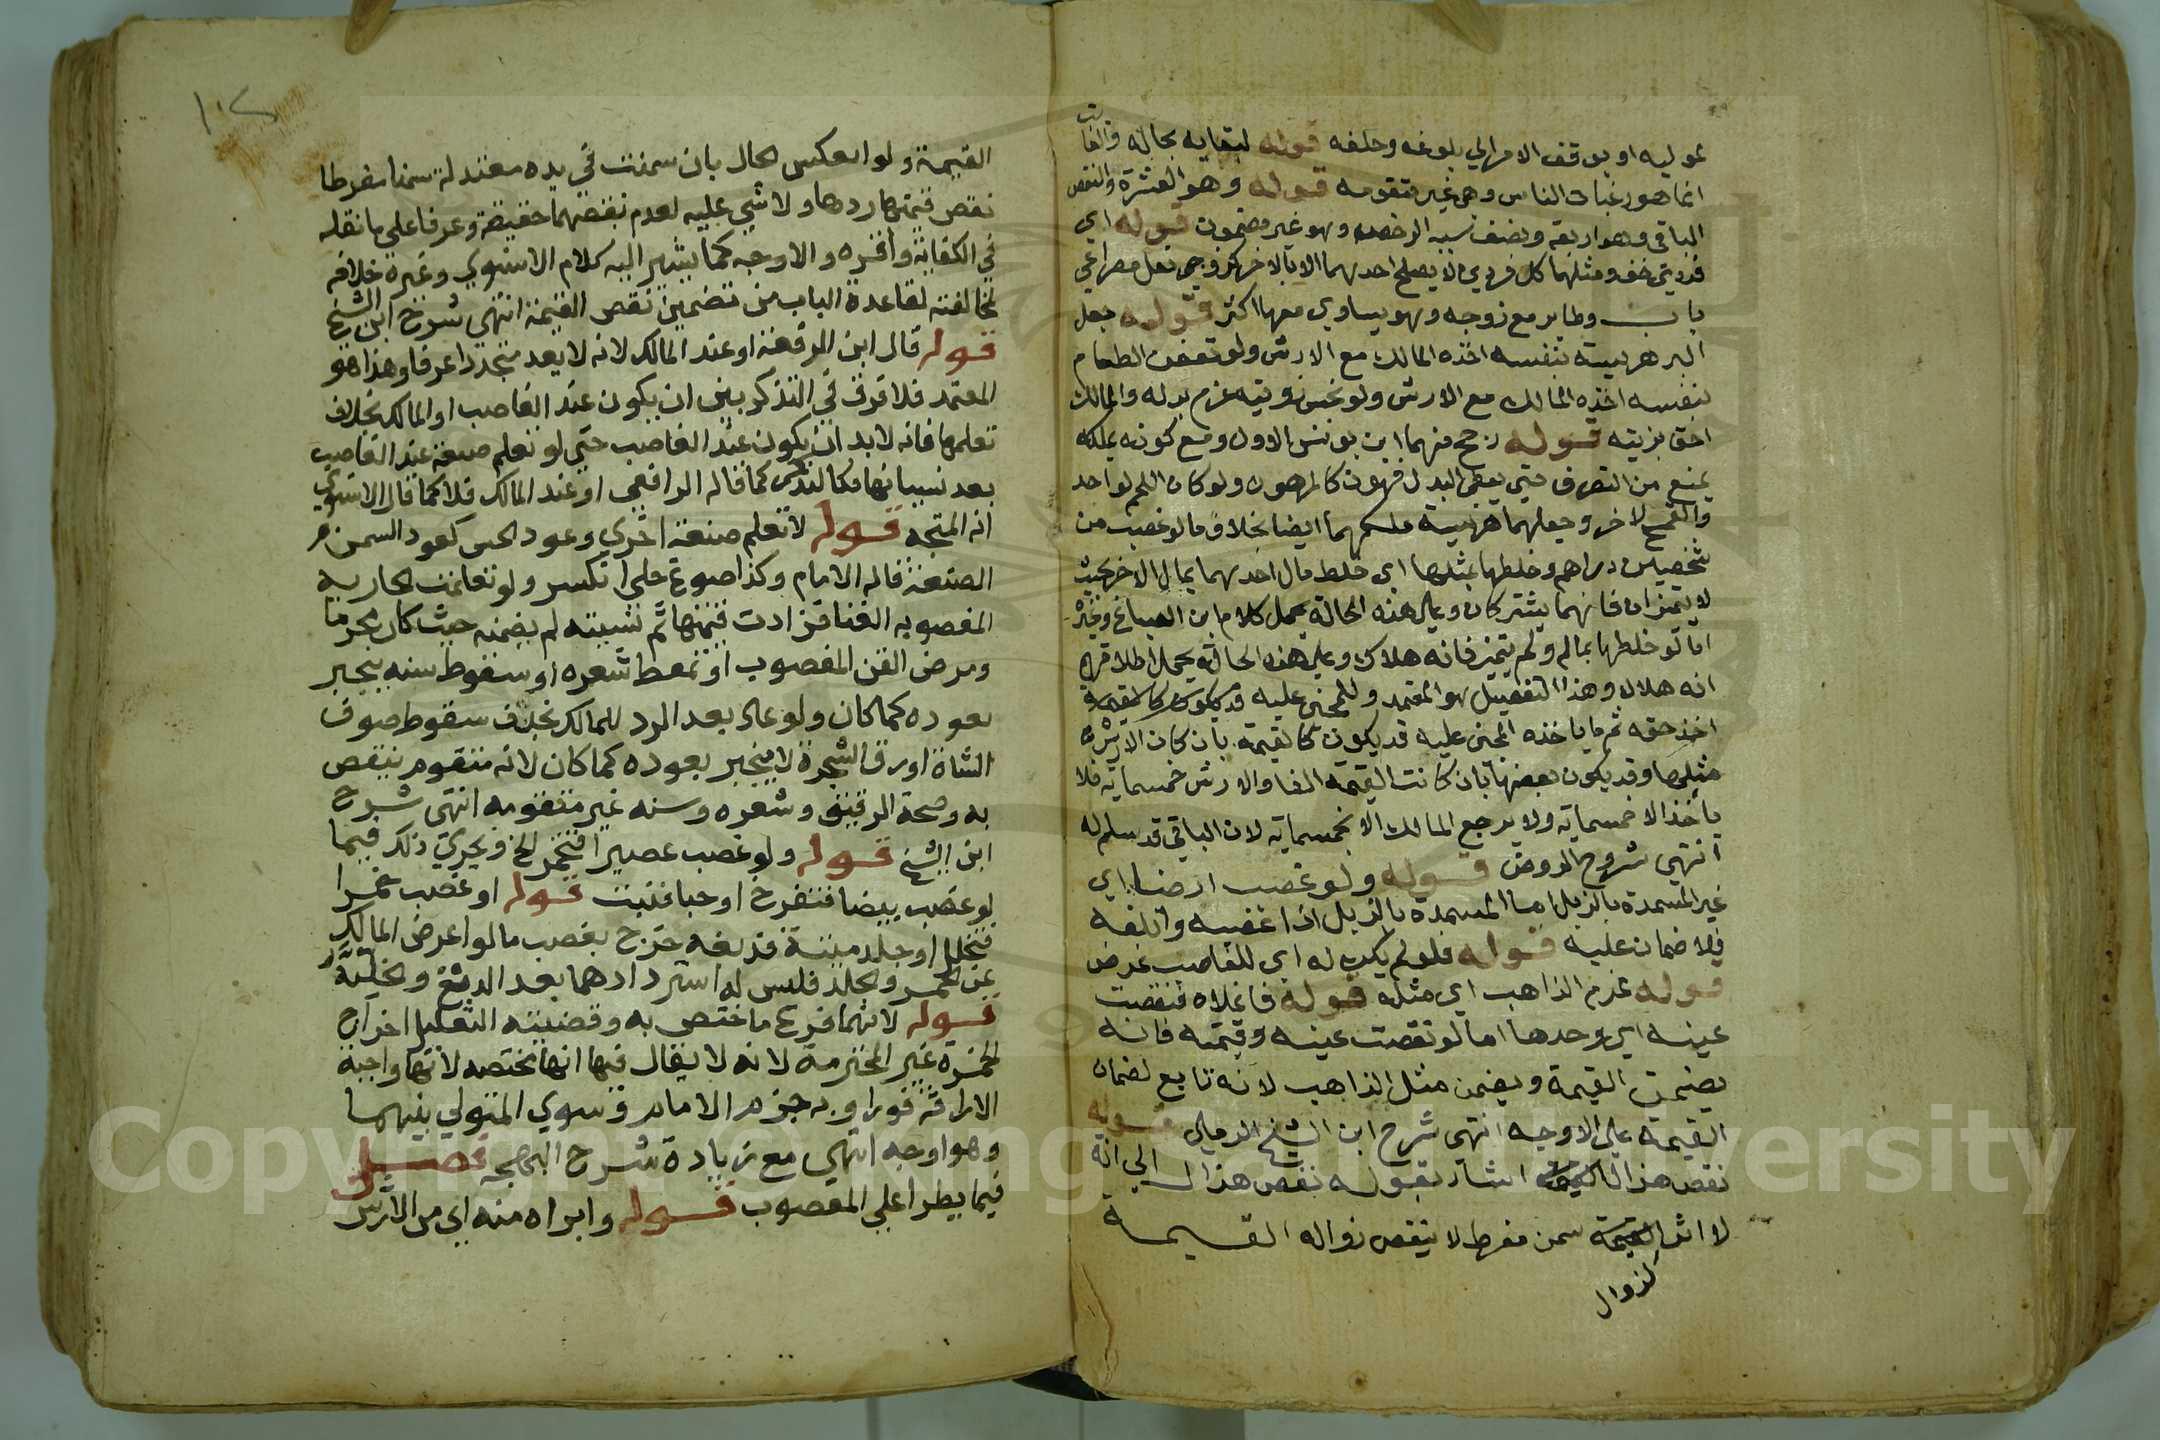 لموليه او يوقف الامر الي بلوغه وحلفه قوله لبقايه بحاله والفائت
انما هو رغبات الناس وهي غير متقومة قوله وهو العشرة والنقص
الباقي وهو اربعة ونصف سببه الرخص وهو غير مضمون قوله اي
فردتي خف ومثلهما كل فردين لا يصلح احدهما الا بالاخر كزوجي نعل ومصراعي
باب وطاير مع زوجه وهو يساوي معها اكثر قوله جعل
البر هريسة بنفسه اخذه المالك مع الارش ولو تعفن الطعام
بنفسه اخذه المالك مع الارش ولو نجس زيته غرم بدله والمالك
احق بزيته قوله رجح منهما ابن يونس الاول ومع كونه يملكه
يمنع من التصرف حتي يعطي البدل فيهون كالمرهون ولو كان اللحم لواحد
والقمح لاخر وجعلهما هريسة ملكهما ايضا بخلاف ما لو غصب من
شخصين دراهم وخلطها بمثلها اي خلط مال احدهما بمال الاخر بحيث
لا يتميزان فانهما يشتركان وعلي هذه الحالة يحمل كلام ابن الصباغ وغيره
اما لو خلطها بماله ولم يتميز فانه هلاك وعلي هذه الحالة يحمل اطلاقهم
انه هلاك وهذا التفصيل هو المعتمد وللمجني عليه قد يكون كالقيمة
اخذ حقه ثم ما ياخذه المجني عليه قد يكون كالقيمة بان كان الارش
مثلها وقد يكون بعضها بان كانت القيمة الفا والارش خمسماية فلا
ياخذ الا خمسماية ولا يرجع المالك الا بخمسماية لان الباقي قد سلم له
انتهي شروح الروض قوله ولو غصب ارضا اي
غير المسمدة بالزبل اما المسمدة بالزبل اذا غصبه واتلفه
فلا ضمان عليه قوله فلو لم يكن له اي للغاصب غرض
قوله غرم الذاهب اي مثله قوله فاغلاه فنقصت
عينه اي وحدها اما لو نقصت عينه وقيمته فانه
يضمن القيمة ويضمن مثل الذاهب لانه تابع لضمان
القيمة علي الاوجه انتهي شرح ابن الشيخ الرملي قوله
نقص هذا اشار بقوله نقص هذا الي انه
لا اثر لزوال سمن مفرط لا ينقص زواله القيمة
لزوال
١٠٢
القيمة ولو انعكس الحال بان سمنت في يده معتدلة سمنا مفرطا
نقص قيمتها ردها ولا شي عليه لعدم نقصهما حقيقة وعرفا علي ما نقله
في الكفاية واقره والاوجه كما يشير اليه كلام الاسنوي وغيره خلافه
لمخالفته لقاعدة الباب من تضمين نقص القيمة انتهي شرح ابن الشيخ
قوله قال ابن الرفعة او عند المالك لانه لا يعد متجددا عرفا وهذا هو
المعتمد فلا فرق في التذكر بين ان يكون عند الغاصب او المالك بخلاف
تعلمها فانه لا بد ان يكون عند الغاصب حتي لو تعلم صنعة عند الغاصب
بعد نسيانها فكالتذكر كما قاله الرافعي او عند المالك فلا كما قال الاسنوي
انه المتجه قوله لا تعلم صنعة اخري وعود الحسن كعود السمن
الصنعة قاله الامام وكذا صوغ حلي انكسر ولو تعلمت الجارية
المغصوبه الغنا فزادت قيمتها ثم نسيته لم يضمنه حيث كان محرما
ومرض القن المغصوب او تمعط شعره او سقوط سنه ينجبر
بعوده كما كان ولو عاد بعد الرد للمالك بخلاف سقوط صوف
الشاة او ورق الشجرة لا ينجبر بعوده كما كان لانه متقوم ينقص
به وصحة الرقيق وشعره وسنه غير متقومه انتهي شرح
ابن الشيخ قوله ولو غصب عصيرا فتخمر الخ ويجري ذلك فيما
لو غصب بيضا فتفرخ او حبا فنبت قوله او غصب خمرا
فتخلل او جلد ميتة فدبغه خرج بغصب ما لو اعرض المالك
عن الخمر والجلد فليس له استردادهما بعد الدبغ والتخلل
قوله لانهما فرع ما اختص به وقضيته التعليل اخراج
الخمرة غير المحترمة لانه لا يقال فيها انها مختصه لانها واجبة
الاراقة فورا وبه جزم الامام وسوي المتولي بينهما
وهو اوجه انتهي مع زيادة شرح البهجه فصل
فيما يطرا علي المغصوب قوله وابراه منه اي من الارش